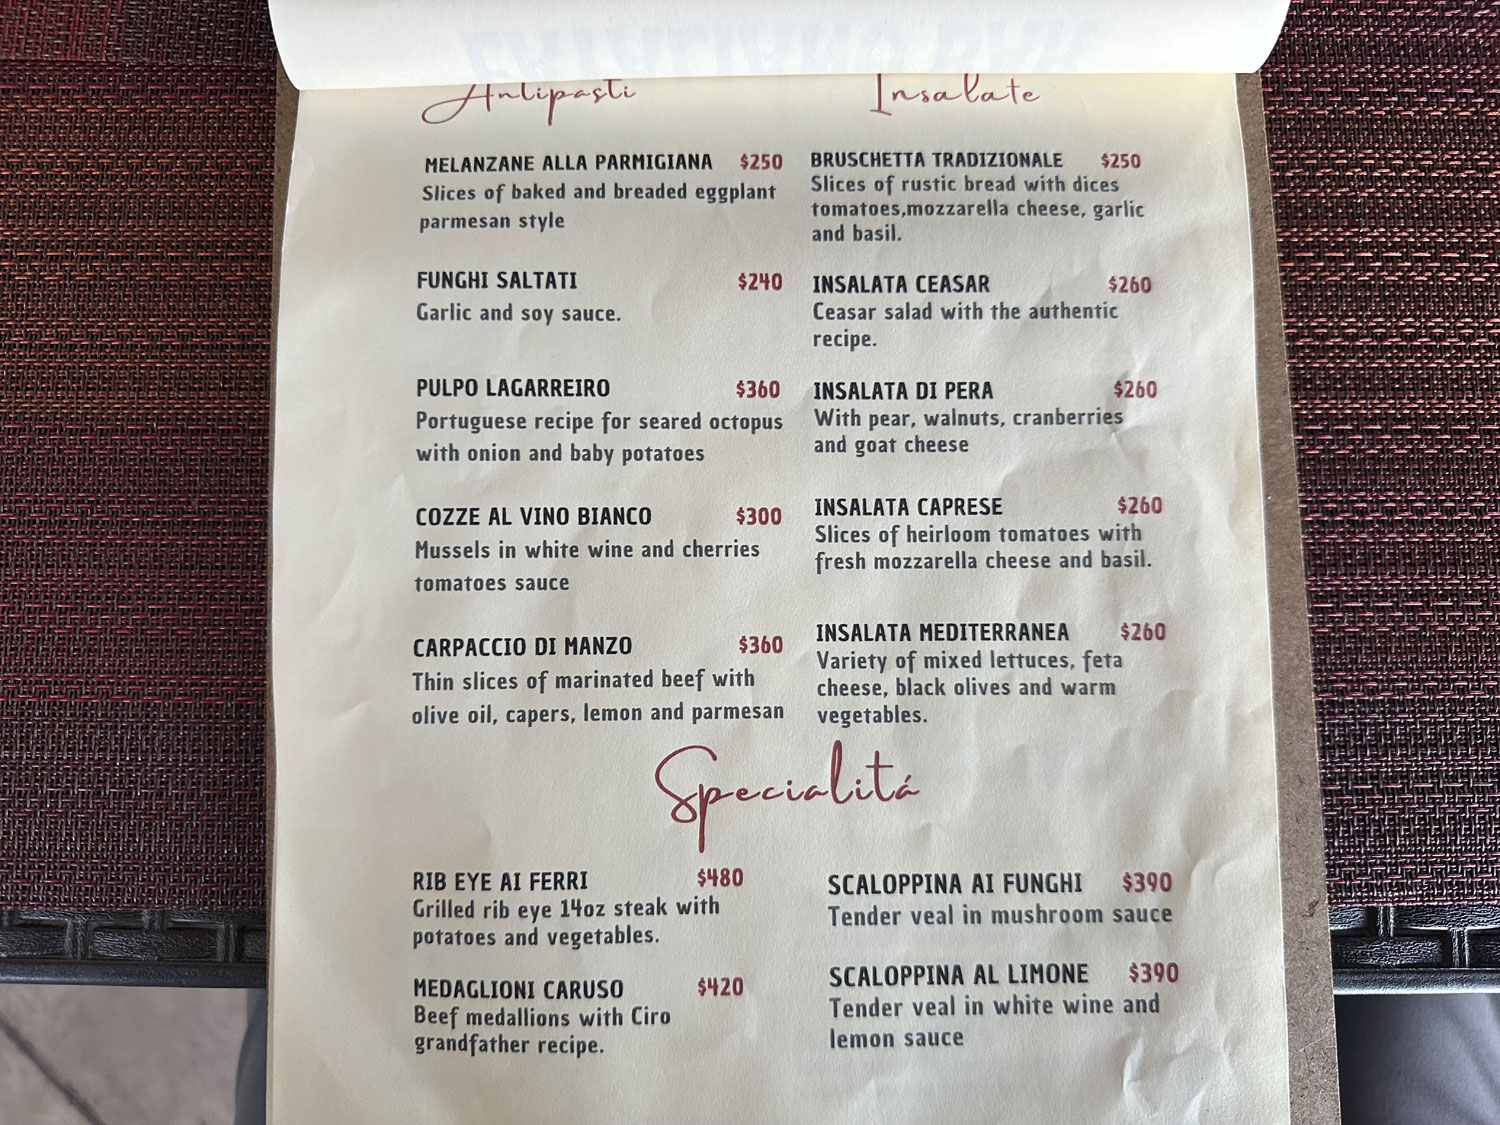 Antipasti
MELANZANE ALLA PARMIGIANA $250
Slices of baked and breaded eggplant
parmesan style
FUNGHI SALTATI $240
Garlic and soy sauce.
PULPO LAGARREIRO $360
Portuguese recipe for seared octopus
with onion and baby potatoes
COZZE AL VINO BIANCO $300
Mussels in white wine and cherries
tomatoes sauce
CARPACCIO DI MANZO $360
Thin slices of marinated beef with
olive oil, capers, lemon and parmesan
Insalate
BRUSCHETTA TRADIZIONALE $250
Slices of rustic bread with dices
tomatoes,mozzarella cheese, garlic
and basil.
INSALATA CEASAR $260
Ceasar salad with the authentic
recipe.
INSALATA DI PERA $260
With pear, walnuts, cranberries
and goat cheese
INSALATA CAPRESE $260
Slices of heirloom tomatoes with
fresh mozzarella cheese and basil.
INSALATA MEDITERRANEA $260
Variety of mixed lettuces, feta
cheese, black olives and warm
vegetables.
Specialitá
RIB EYE AI FERRI $480
Grilled rib eye 14oz steak with
potatoes and vegetables.
MEDAGLIONI CARUSO $420
Beef medallions with Ciro
grandfather recipe.
SCALOPPINA AI FUNGHI $390
Tender veal in mushroom sauce
SCALOPPINA AL LIMONE $390
Tender veal in white wine and
lemon sauce